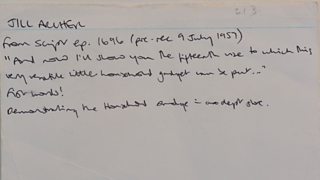 213
JILL ARCHER
From Script ep. 1696 (pre-rec 9 July 1957)
"And now I'll show you the fifteenth use to which this
very versatile little household gadget can be put..."
Demonstrating the Household